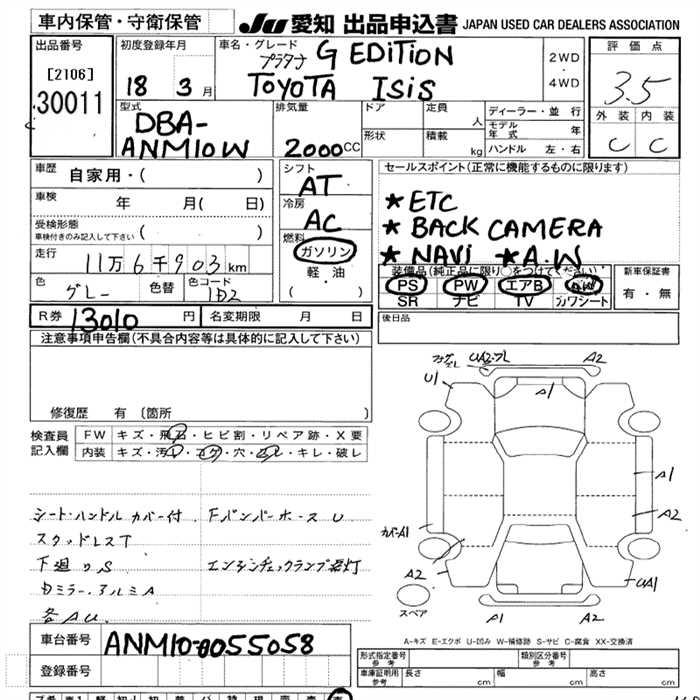 車内保管・守衛保管
JU 愛知 出品申込書 JAPAN USED CAR DEALERS ASSOCIATION
出品番号
[2106]
30011
初度登録年月
18 3月
車名・グレード
プラタナ G EDITION
TOYOTA ISIS
2WD
・
4WD
評価点
3.5
外装 内装
C C
型式
DBA-
ANM10W
排気量
2000CC
ドア
定員
人
形状
積載
kg
ディーラー・並行
モデル年式 年
ハンドル 左・右
車歴
自家用・( )
車検
年 月( 日)
受検形態
車検付きのみ記入して下さい ( )
走行
11万6千903km
色
グレー
色替
色コード
1D2
シフト
AT
冷房
AC
燃料
ガソリン
軽・油
( )
セールスポイント(正常に機能するものに限ります)
★ETC
★BACK CAMERA
★NAVi ★A.W
装備品(純正品に限り○をつけてください)
PS PW エアB AW
SR ナビ TV カワシート
新車保証書
有・無
R券 13010 円
名変期限 月 日
後日品
注意事項申告欄(不具合内容等は具体的に記入して下さい)
修復歴 有 (箇所 )
検査員
記入欄
FW キズ・飛石・ヒビ割・リペア跡・X要
内装 キズ・汚レ・コゲ・穴・スレ・キレ・破レ
シート・ハンドル カバー付
スタッドレスT
下廻りS
カミラー.アルミA
各AU.
Fバンパーホース U
エンジンチェックランプ点灯
UA2
A2
U1
A1
A1
A2
カバーA1
A2
UA1
スペア
A1
A2
A-キズ E-エクボ U-凹み W-補修跡 S-サビ C-腐食 XX-交換済
車台番号
ANM10-0055058
登録番号
形式指定番号
参考
類別区分番号
参考
車庫証明用
参考
長さ cm
幅 cm
高さ cm